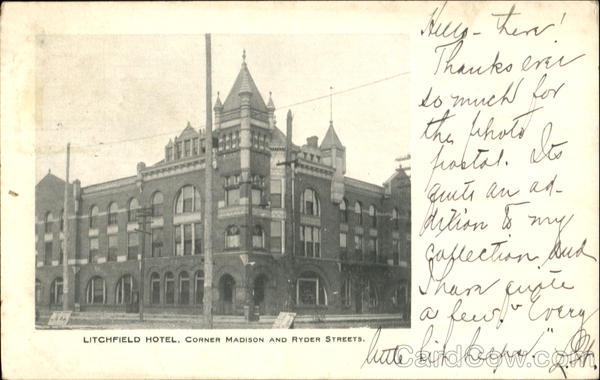 Hello - there!
Thanks ever
so much for
the photo
postal. Its
quite an ad-
dition to my
collection, and
I have quite
a few. "Every
little bit helps."
LITCHFIELD HOTEL, CORNER MADISON AND RYDER STREETS.
CardCow.com